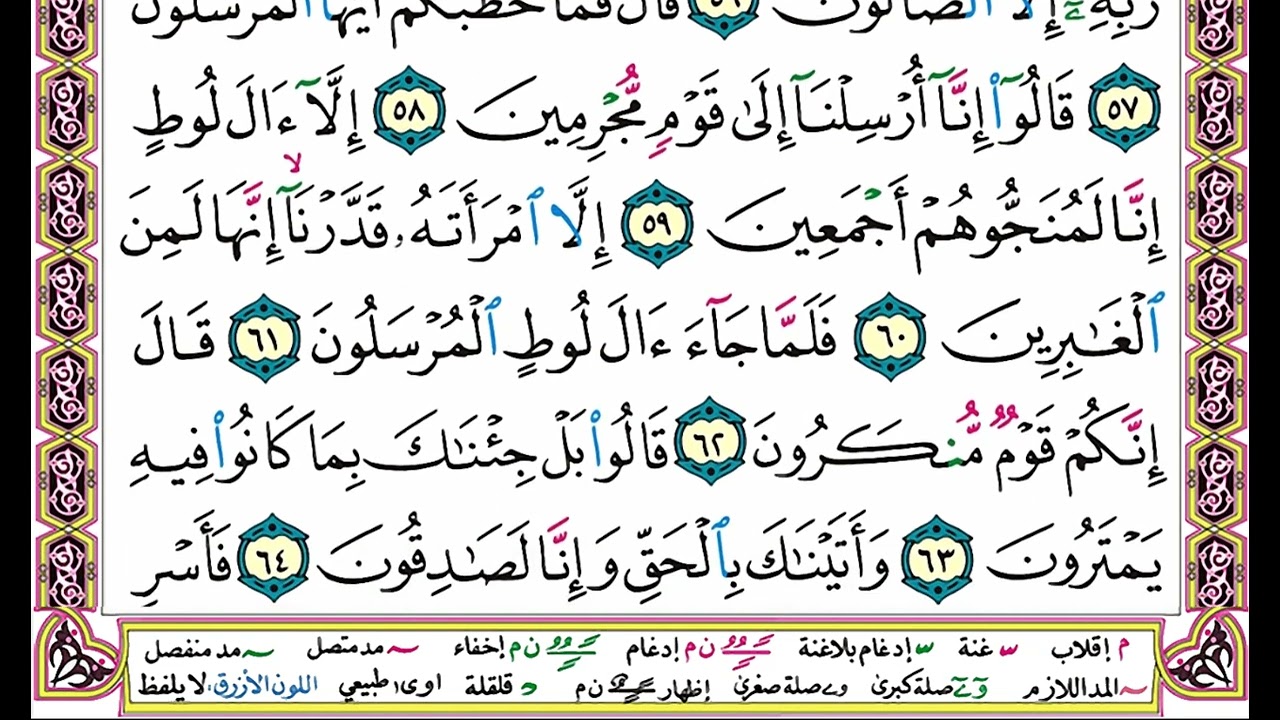 رَبِّهِۦٓ إِلَّا ٱلضَّآلُّونَ ٥٦ قَالَ فَمَا خَطْبُكُمْ أَيُّهَا ٱلْمُرْسَلُونَ
٥٧ قَالُوٓا۟ إِنَّآ أُرْسِلْنَآ إِلَىٰ قَوْمٍ مُّجْرِمِينَ ٥٨ إِلَّآ ءَالَ لُوطٍ
إِنَّا لَمُنَجُّوهُمْ أَجْمَعِينَ ٥٩ إِلَّا ٱمْرَأَتَهُۥ قَدَّرْنَآ ۙ إِنَّهَا لَمِنَ
ٱلْغَـٰبِرِينَ ٦٠ فَلَمَّا جَآءَ ءَالَ لُوطٍ ٱلْمُرْسَلُونَ ٦١ قَالَ
إِنَّكُمْ قَوْمٌ مُّنكَرُونَ ٦٢ قَالُوا۟ بَلْ جِئْنَـٰكَ بِمَا كَانُوا۟ فِيهِ
يَمْتَرُونَ ٦٣ وَأَتَيْنَـٰكَ بِٱلْحَقِّ وَإِنَّا لَصَـٰدِقُونَ ٦٤ فَأَسْرِ
م إقلاب غنة إدغام بلاغنة ن م إدغام ن م إخفاء مد متصل مد منفصل
المد اللازم صلة كبرى صلة صغرى إظهار ن م قلقلة اوى طبيعي اللون الأزرق: لا يلفظ